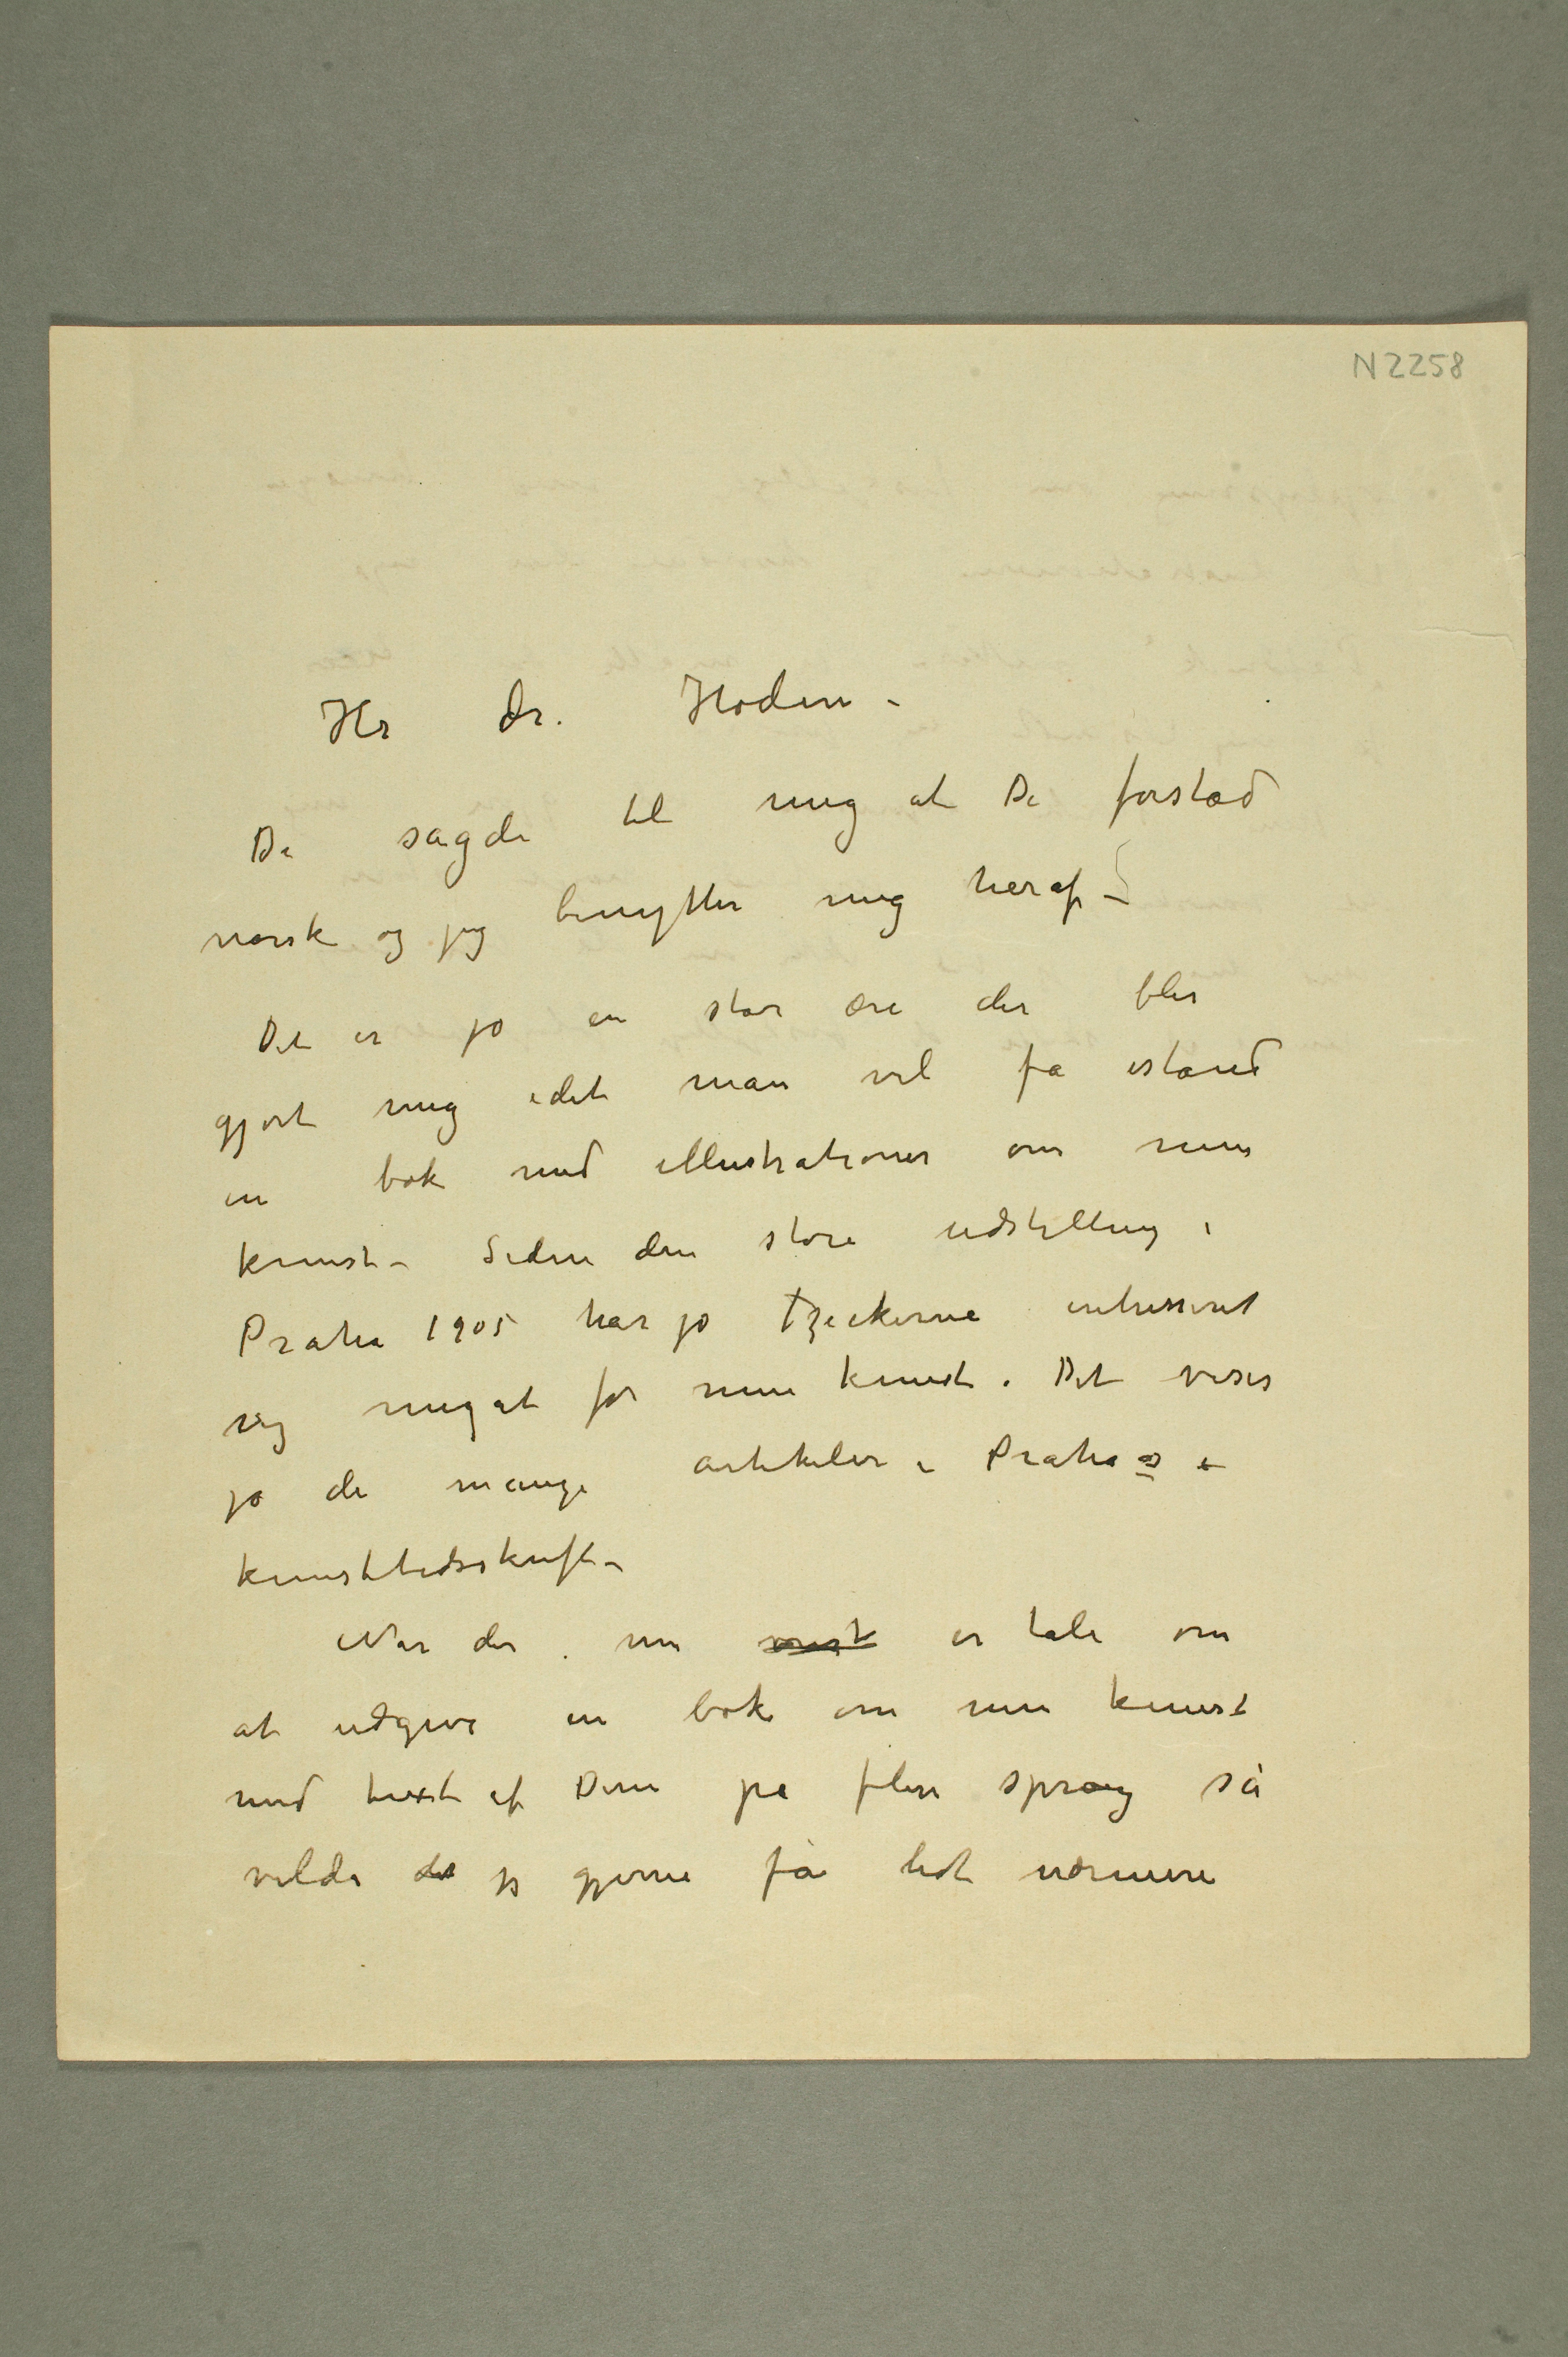 N 2258
Hr Dr. Hodin –
De sagde til mig at De forstod
norsk og jeg benytter mig heraf –
Det er jo en stor ære der blir
gjort mig idet man vil få istand
en bok med illustrationer om min
kunst – Siden den store udstilling i
Praha 1905 har jo Tzeckerne intresseret
sig meget for min kunst. Det viser
jo de mange artikeler i Praha s
kunsttidsskrift –
Når der nu er tale om
at udgive en bok om min kunst
med text af Dem på flere sprog så
vilde jeg gjerne få lidt nærmere